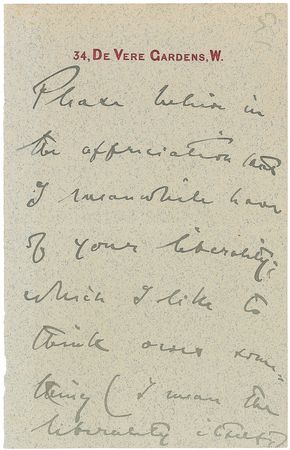 34, DE VERE GARDENS, W.
Please believe in
the appreciation that
I meanwhile have
of your liberality;
which I like to
think owes some-
thing (I mean the
liberality itself)